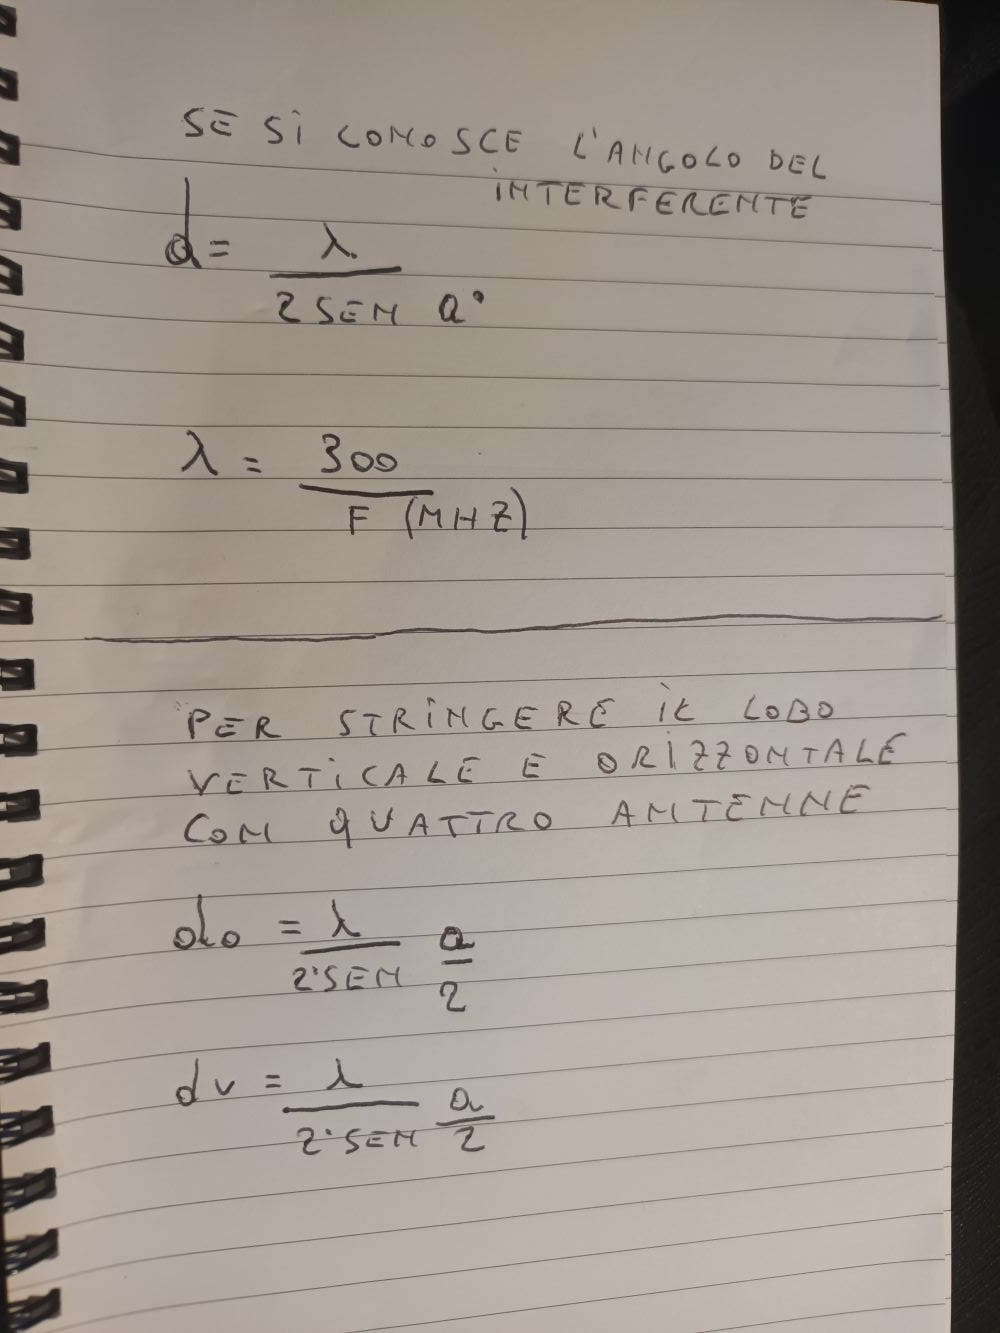 SE SI CONOSCE L'ANGOLO DEL
INTERFERENTE
d = λ
2 SEN a°
λ = 300
F (MHZ)
PER STRINGERE IL LOBO
VERTICALE E ORIZZONTALE
CON QUATTRO ANTENNE
do = λ a
2·SEN 2
dv = λ a
2·SEN 2